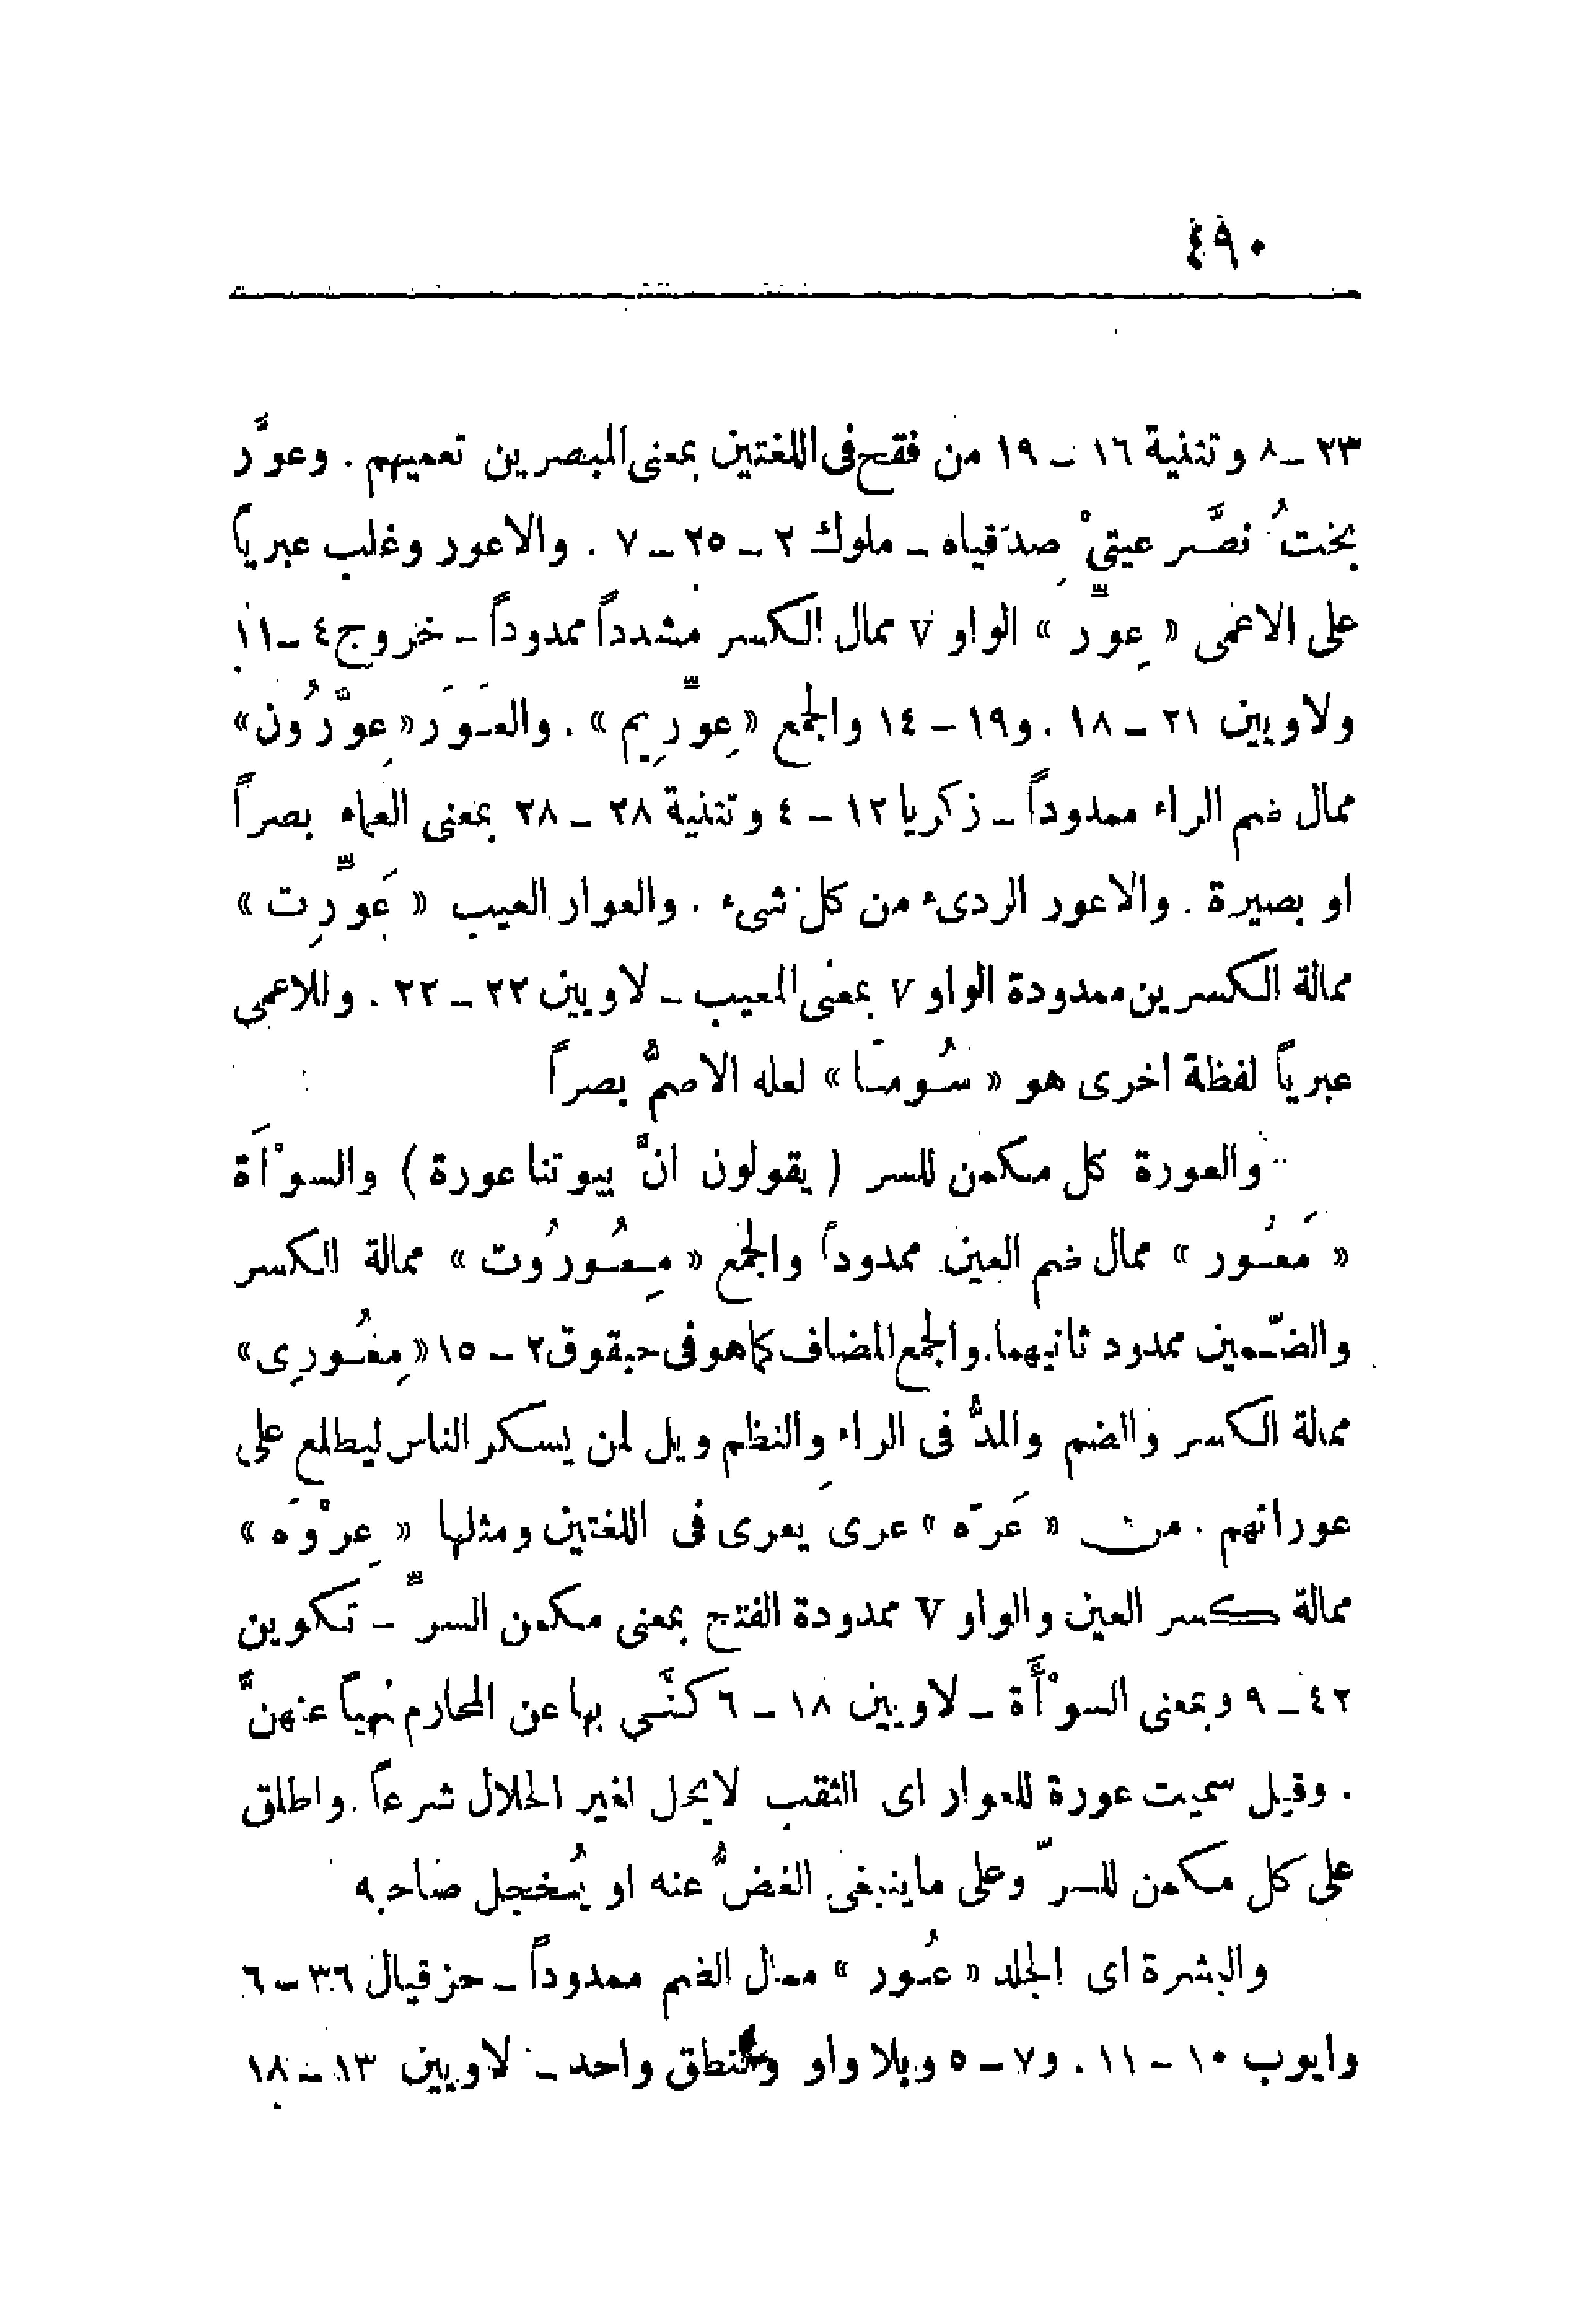 ٤٩٠
٢٣ـ٨ وتثنية ١٦ـ١٩ من فقح فى اللغتين بمعنى المبصرين تعميهم . وعوَّر
بختُ نصَّر عيتىْ صِدَقياه ـ ملوك ٢ ـ ٢٥ ـ ٧ . والاعور وغلب عبرياً
على الاعمى « عِوِّر » الواو V ممال الكسر مشدداً ممدوداً ـ خروج ٤ـ١١
ولاويين ٢١ ـ ١٨ . و١٩ ـ ١٤ والجمع « عِوِّرِيم » . والعَوَر « عِوَّرُون »
ممال ضم الراء ممدوداً ـ زكريا ١٢ ـ ٤ وتثنية ٢٨ ـ ٢٨ بمعنى العماء بصراً
او بصيرة . والاعور الردىء من كل شىء . والعوار العيب « عَوِّرِت »
ممالة الكسرين ممدودة الواو V بمعنى المعيب ـ لاويين ٢٢ ـ ٢٢ . وللاعمى
عبرياً لفظة اخرى هو « سُومَا » لعله الاصمُّ بصراً
والعورة كل مكمن للسر ( يقولون انَّ بيوتنا عورة ) والسوْاَة
« مَعُور » ممال ضم العين ممدوداً والجمع « مِعُورُوت » ممالة الكسر
والضمين ممدود ثانيهما . والجمع المضاف كما هو فى حبقوق ٢ ـ ١٥ « مِعُورِى »
ممالة الكسر والضم والمدُّ فى الراءِ والنظم ويل لمن يسكر الناس ليطلع على
عوراتهم . من « عَرَه » عرى يعرى فى اللغتين ومثلها « عِرْوَه »
ممالة كسر العين والواو V ممدودة الفتح بمعنى مكمن السرِّ ـ تكوين
٤٢ ـ ٩ وبمعنى السوْأَة ـ لاويين ١٨ ـ ٦ كنَّى بها عن المحارم نهياً عنهنَّ
. وقيل سميت عورة للعوار اى الثقب لايحل لغير الحلال شرعاً . واطلق
على كل مكمن للسرّ وعلى ماينبغى الغضُّ عنه او يُخجل صاحبه
والبشرة اى الجلد « عُور » ممال الضم ممدوداً ـ حزقيال ٣٦ ـ ٦
وايوب ١٠ ـ ١١ . و٧ ـ ٥ وبلا واو والنطق واحد ـ لاويين ١٣ ـ ١٨